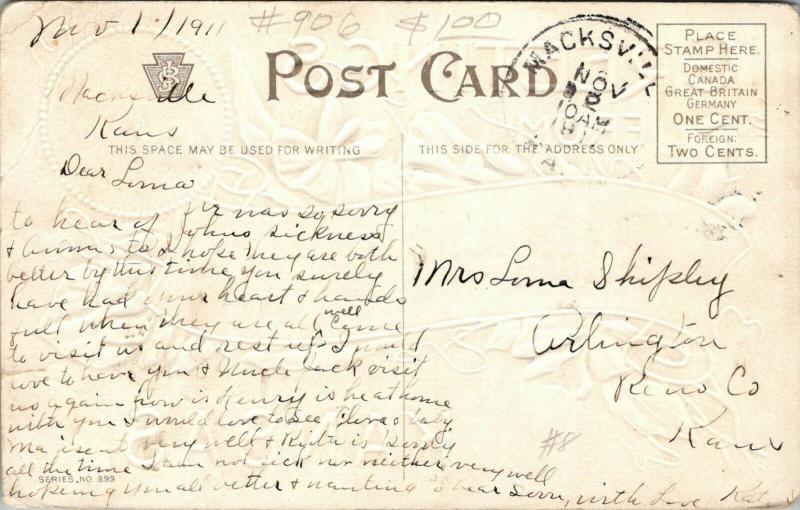 Nov 1/1911 #906 $100
POST CARD
MACKSVILLE
NOV
2
10AM
PLACE
STAMP HERE.
DOMESTIC
CANADA
GREAT BRITAIN
GERMANY
ONE CENT.
FOREIGN:
TWO CENTS.
Macksville
Kans
THIS SPACE MAY BE USED FOR WRITING
THIS SIDE FOR THE ADDRESS ONLY
Dear Loma
was so sorry
to hear of Johns sickness
& to I hope they are both
better by this time you surely
have had your heart & hands
full when they are all well come
to visit us and rest up I would
love to have you & Uncle Jack visit
us again how is Henry is he at home
with you I would love to see & baby
Ma isent very well & is
all the time I am not sick nor neither very well
hopeing you all better & wanting to hear soon, with Love Kat
Mrs Loma Shipley
Arlington
Reno Co
Kans
#8
SERIES, NO. 899